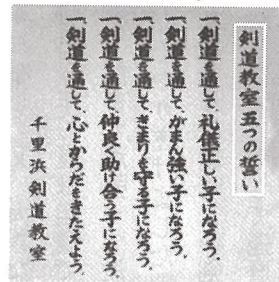 剣道教室五つの誓い
一、剣道を通して、礼儀正しい子になろう。
一、剣道を通して、がまん強い子になろう。
一、剣道を通して、きまりを守る子になろう。
一、剣道を通して、仲良く助け合う子になろう。
一、剣道を通して、心とからだをきたえよう。
千里浜剣道教室